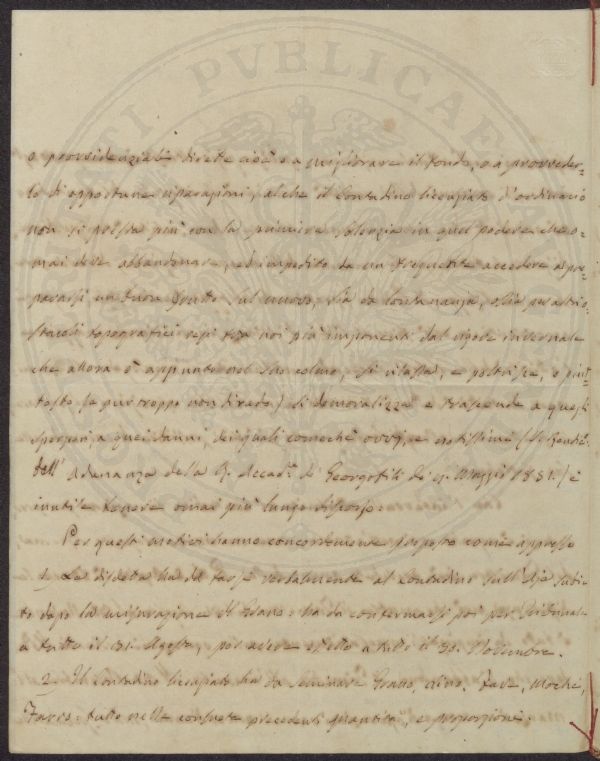 o provvidenziali dirette cioè o a migliorare il fondo, o a provveder-
lo di opportune riparazioni, al che il Contadino licenziato d'ordinario
non si presta più con la primiera solerzia in quel podere che o-
mai deve abbandonare, ed impedito da un frequente accedere a pre-
pararsi un buon frutto sul nuovo, sia da lontananza, o sia per altri o-
stacoli topografici resi fra noi più imponenti dal rigore invernale
che allora è appunto nel suo colmo, si rilassa, e poltrisce, o piut-
tosto (e pur troppo non di rado) si demoralizza e trascende a quegli
sperperi, a quei danni, dei quali comechè ovvj, e notissimi (V. Rendic.
dell' Adunanza della R. Accad. de' Georgofili de' Maggio 1831.) è
inutile tenere omai più lungo discorso.
Per questi motivi hanno concordemente proposto come appresso
1. La disdetta ha da farsi verbalmente al Contadino sull'Aja subi-
to dopo la misurazione del Grano: ha da confermarsi poi per Tribunale
a tutto il 31. Agosto, per avere effetto a tutto il 30. Novembre.
2. Il Contadino licenziato ha da seminare Grano, Fave,
Farro: tutto nelle consuete precedenti quantità, e proporzioni.
PVBLICAE